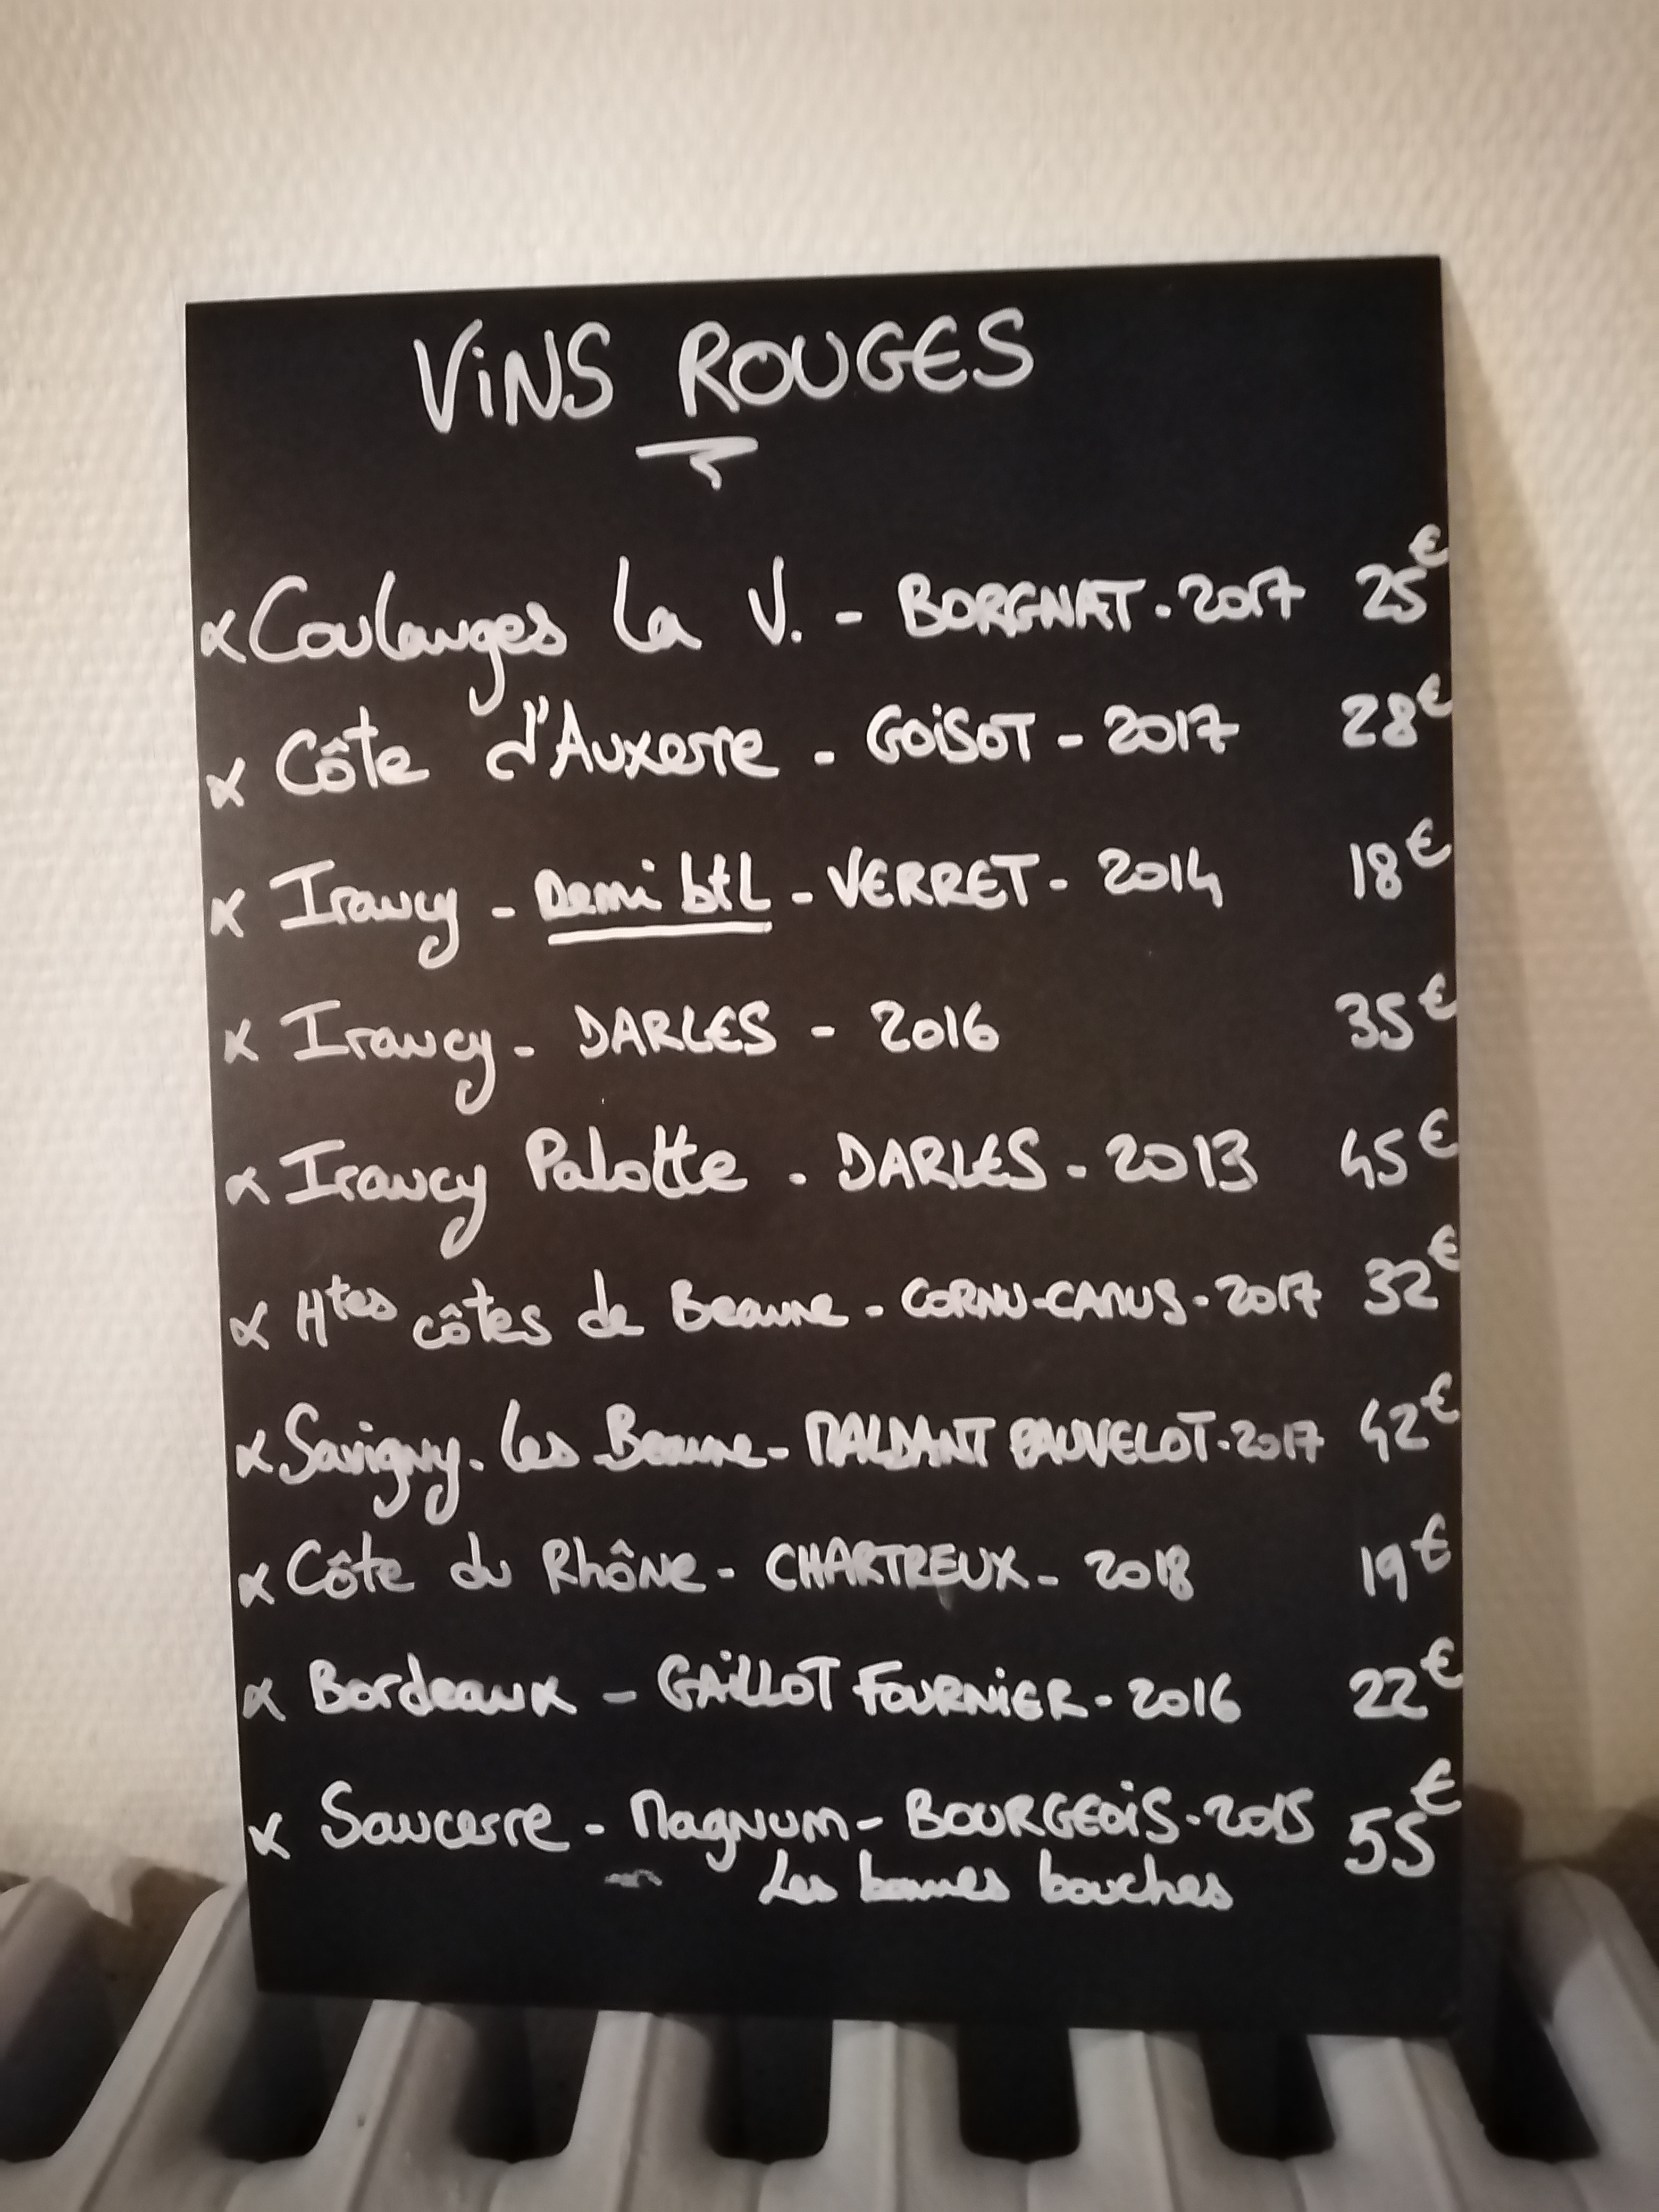 ViNS ROUGES
Coulanges la V. - BORGNAT - 2017 25€
Côte d'Auxerre - GOiSOT - 2017 28€
Irancy - Demi btl - VERRET - 2014 18€
Irancy - DARLES - 2016 35€
Irancy Palotte - DARLES - 2013 45€
Htes côtes de Beaune - CORNU-CAMUS - 2017 32€
Savigny-les Beaune - MALDANT PAUVELOT - 2017 42€
Côte du Rhône - CHARTREUX - 2018 19€
Bordeaux - GAiLLOT FOURNiER - 2016 22€
Sancerre - Magnum - BOURGEOiS - 2015 55€
Les bonnes bouches